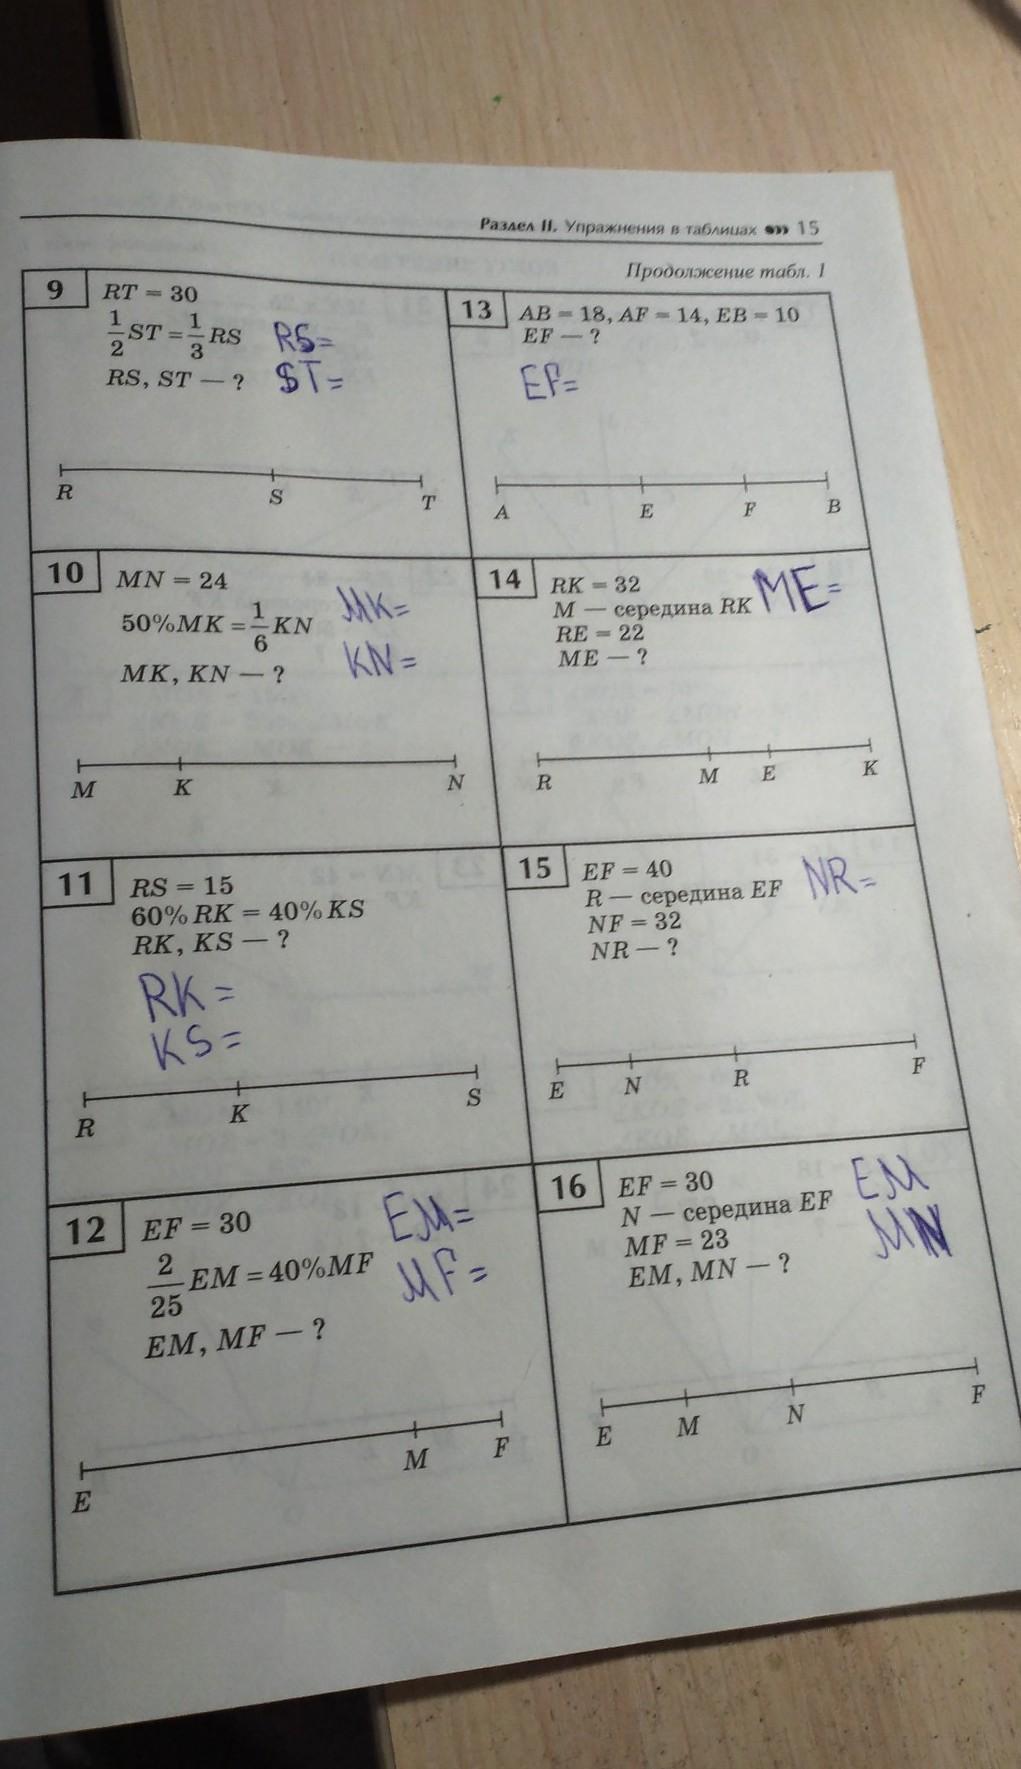 Раздел II. Упражнения в таблицах 15
Продолжение табл. 1
9
RT = 30
1/2 ST = 1/3 RS
RS, ST — ?
RS=
ST=
R S T
10
MN = 24
50%MK = 1/6 KN
MK, KN — ?
MK=
KN=
M K N
11
RS = 15
60% RK = 40% KS
RK, KS — ?
RK=
KS=
R K S
12
EF = 30
2/25 EM = 40%MF
EM, MF — ?
EM=
MF=
E M F
13
AB = 18, AF = 14, EB = 10
EF — ?
EF=
A E F B
14
RK = 32
M — середина RK
RE = 22
ME — ?
ME=
R M E K
15
EF = 40
R — середина EF
NF = 32
NR — ?
NR=
E N R F
16
EF = 30
N — середина EF
MF = 23
EM, MN — ?
EM
MN
E M N F